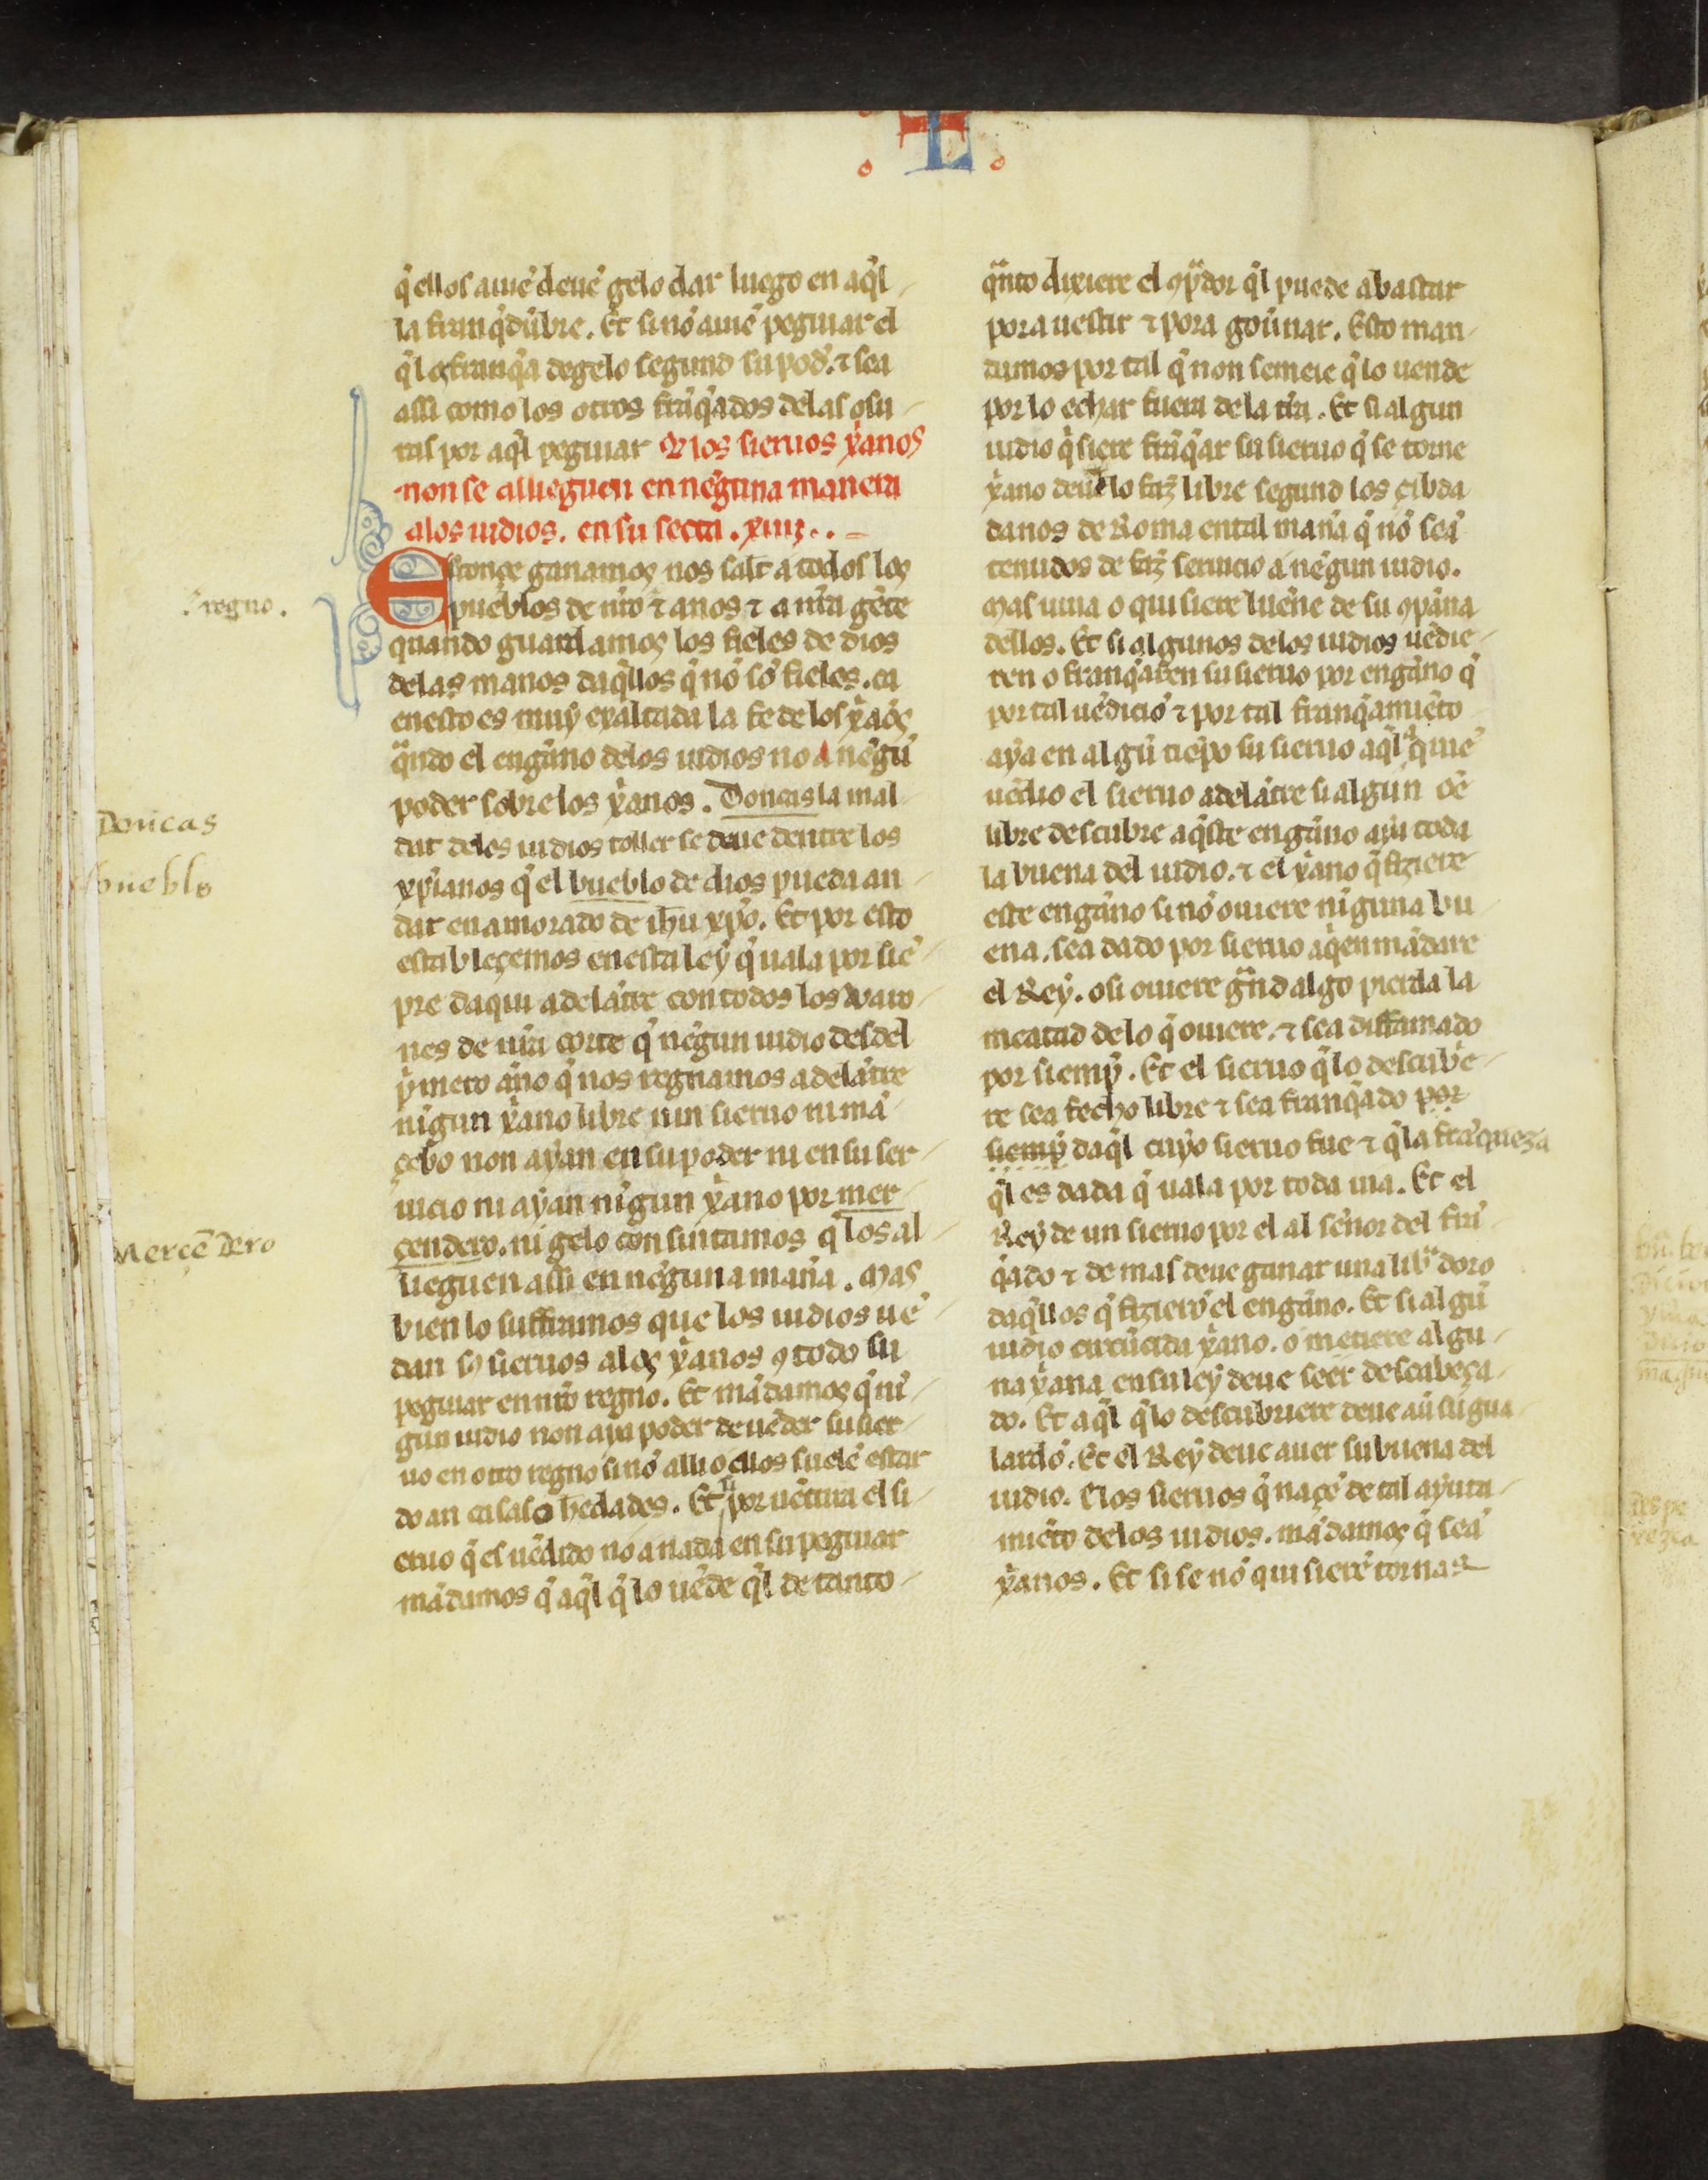 L
q̃ ellos auiẽ deuẽ gelo dar luego en aq̃l
la franq̃dũbre. Et si nõ auiẽ pegujar el
q̃l franq̃a degelo segund su pod̾. ⁊ sea
assi como los otros frãq̃ados delas osu
ras por aq̃l pegujar Q̃ los sieruos x̃anos
non se allieguen en neguna manera
alos iudios. en su secta. xiiij..
Estonçe ganamos nos salut a todos los
pueblos de nr̃o ⁊ a nos ⁊ a nr̃a gẽte
quando guardamos los fieles de dios
delas manos daq̃llos q̃ nõ sõ fieles. ca
en esto es muy exaltada la fe de los x̃aõs
q̃ndo el engãno delos iudios no a negũ
poder sobre los x̃anos. Doncas la mal
dat delos iudios toller se deue dentre los
xp̃ianos q̃ el pueblo de dios pueda an
dar enamorado de ih̃u xp̃o. Et por esto
estableçemos en esta ley q̃ uala por siẽ
pre daqui adelãtre con todos los varo
nes de nr̃a corte q̃ negun iudio desdel
p̃mero ãno q̃ nos regnamos adelãtre
nĩgun x̃ano libre nin sieruo ni mã
çebo non ayan en su poder ni en su ser
uicio ni ayan nĩgun x̃ano por mer
çendero. ni gelo consintamos q̃ los al
lieguen assi en neguna mañ̃a. Mas
bien lo sufframos que los iudios uẽ
dan sꝯ sieruos alos x̃anos ꝯ todo su
pegujar en nr̃o regno. Et mãdamos q̃ nĩ
gun iudio non aya poder de uẽder su sier
uo en otro regno si nõ alli o ellos suelẽ estar
do an casas o hedades. Et si por uẽtura el si
eruo q̃ es uẽdido nõ a nada en su pegujar
mãdamos q̃ aq̃l q̃ lo uẽde q̃l de tanto
q̃nto dixiere el ꝯp̃dor q̃l puede abastar
pora uestir ⁊ pora goũnar. Esto man
damos por tal q̃ non semeie q̃ lo uende
por lo echar fuera de la tr̃a. Et si algun
iudio q̃siere frãq̃ar su sieruo q̃ se torne
x̃ano deue lo faz̃ libre segund los çibda
danos de Roma en tal mañ̃a q̃ nõ seã
tenudos de faz̃ seruicio a negun iudio.
Mas uiua o quisiere lueñe de su ꝯpãna
dellos. Et si algunos delos iudios uẽdie
ren o franq̃aren su sieruo por engãno q̃
por tal uẽdiciõ ⁊ por tal franq̃amiẽto
aya en algũ tiẽpo su sieruo aq̃l a quiẽ
uẽdio el sieruo adelãtre si algun oẽ
libre descubre aq̃ste engãno aya toda
la buena del iudio. ⁊ el x̃ano q̃ fiziere
este engãno si nõ ouiere nĩguna bu
ena. sea dado por sieruo a q̃en mãdare
el Rey. o si ouiere g̃nd algo pierda la
meatad delo q̃ ouiere. ⁊ sea diffamado
por siemp̃. Et el sieruo q̃ lo descubrie
re sea fecho libre ⁊ sea franq̃ado por
siemp̃ daq̃l cuyo sieruo fue ⁊ q̃ la frãqueza
q̃l es dada q̃ uala por toda uia. Et el
Rey de un sieruo por el al señor del frã
q̃ado ⁊ de mas deue ganar una libra doro
daq̃llos q̃ fizierõ el engãno. Et si algũ
iudio circũcida x̃ano. o metiere algu
na x̃ana en su ley deue seer descabeça
do. Et aq̃l q̃ lo descubriere deue auẽ su gua
lardõ. Et el Rey deue auer su buena del
iudio. Elos sieruos q̃ naçẽ de tal ayunta
miẽto delos iudios. mãdamos q̃ seã
x̃anos. Et si se nõ quisierẽ tornar
regno.
Doncas
pueblo
Merçẽdero